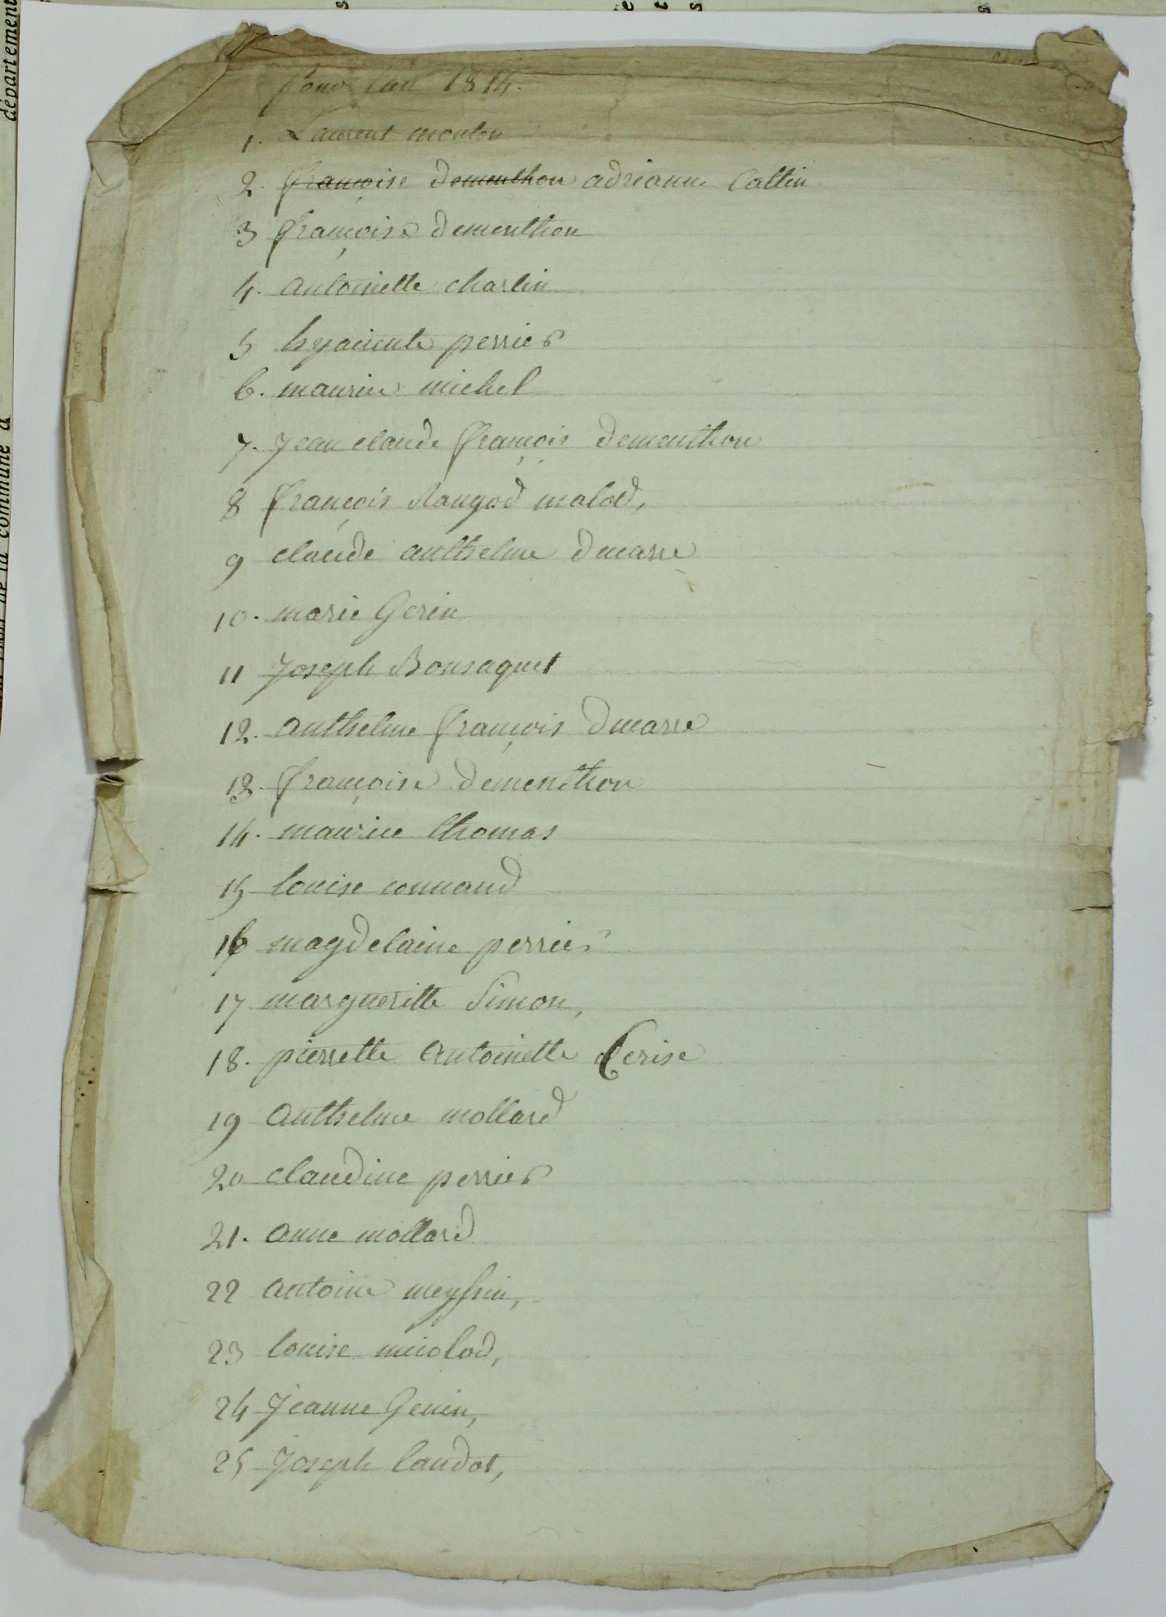 pour l'an 1814.
1. Laurent monton
2. françoise dementhon adrianne Cattin
3 françoise dementhon
4. antoinette charlin
5 hyacinte perrier
6. maurice michel
7. Jean claude françois dementhon
8 françois Mangod malod,
9 claude anthelme dmarre
10. marie Gerin
11 Joseph Bonsaquet
12. anthelme françois dmarre
13. françoise dementhon
14. maurice thomas
15 louise connand
16 magdelaine perrier
17 margueritte Simon,
18. pierrette Antoinette Cerise
19 anthelme mollard
20 claudine perrier
21. anne mollard
22 antoine meyssin,
23 louise miolod,
24 Jeanne Genin,
25 Joseph landot,
département
de la commune d